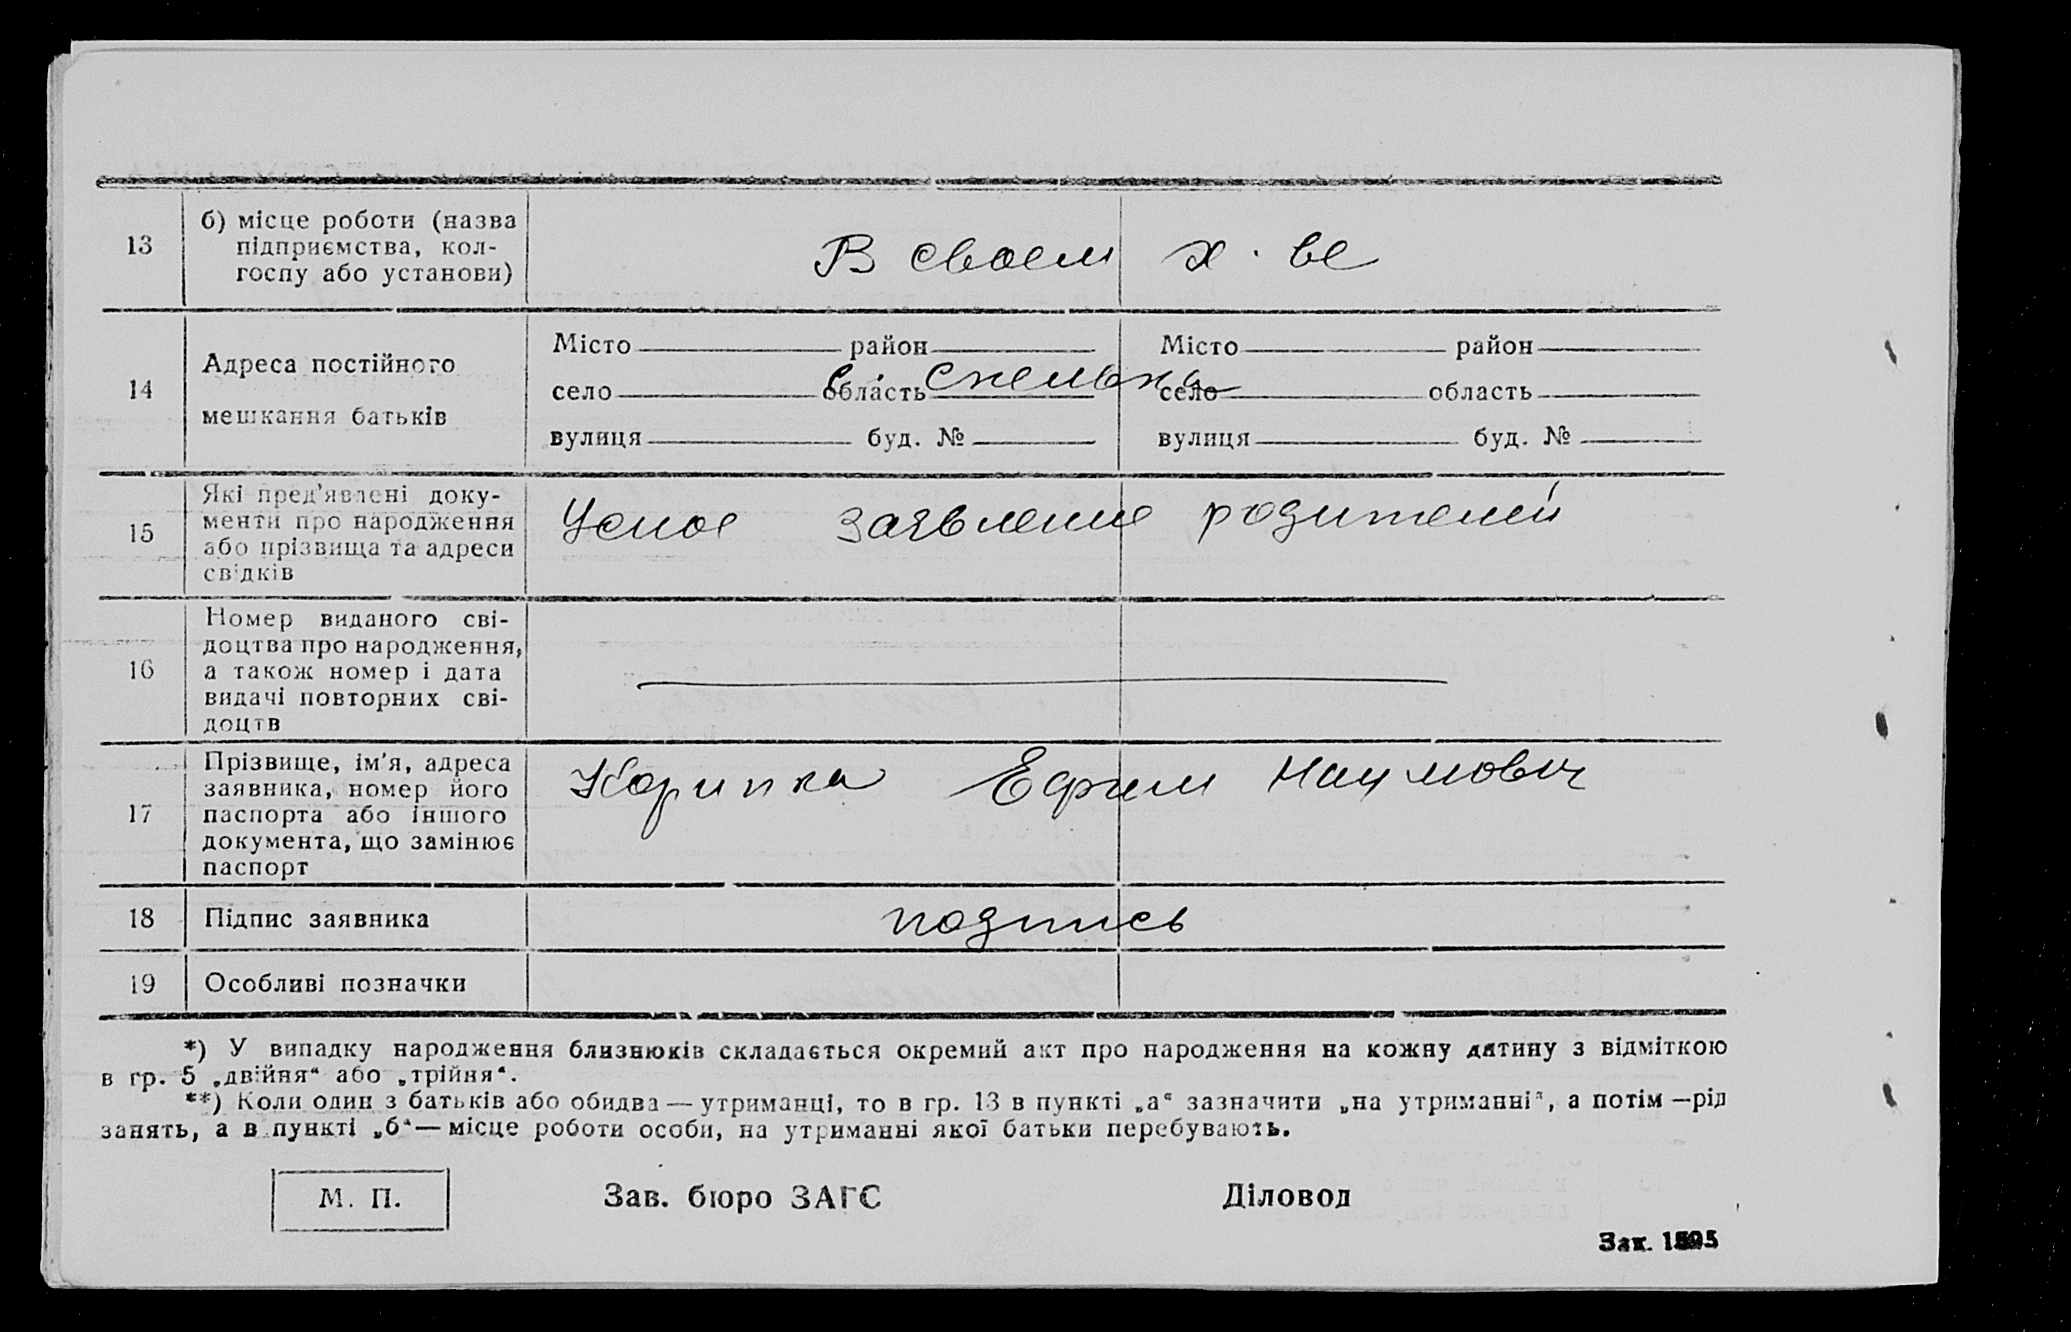 13
б) місце роботи (назва
підприємства, кол-
госпу або установи)
В своем х-ве
14
Адреса постійного
мешкання батьків
Місто район
село область
вулиця буд. №
с. Скелька
Місто район
село область
вулиця буд. №
15
Які пред'явлені доку-
менти про народження
або прізвища та адреси
свідків
Усное заявление родителей
16
Номер виданого сві-
доцтва про народження,
а також номер і дата
видачі повторних сві-
доцтв
17
Прізвище, ім'я, адреса
заявника, номер його
паспорта або іншого
документа, що замінює
паспорт
Карипка Ефим Наумович
18
Підпис заявника
подпись
19
Особливі позначки
*) У випадку народження близнюків складається окремий акт про народження на кожну дитину з відміткою
в гр. 5 „двійня“ або „трійня“.
**) Коли один з батьків або обидва — утриманці, то в гр. 13 в пункті „а“ зазначити „на утриманні“, а потім — рід
занять, а в пункті „б“ — місце роботи особи, на утриманні якої батьки перебувають.
М. П.
Зав. бюро ЗАГС
Діловод
Зак.